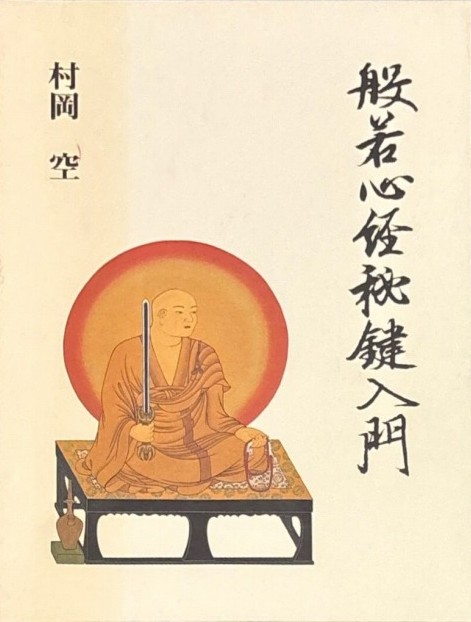 般若心経秘鍵入門
村岡 空